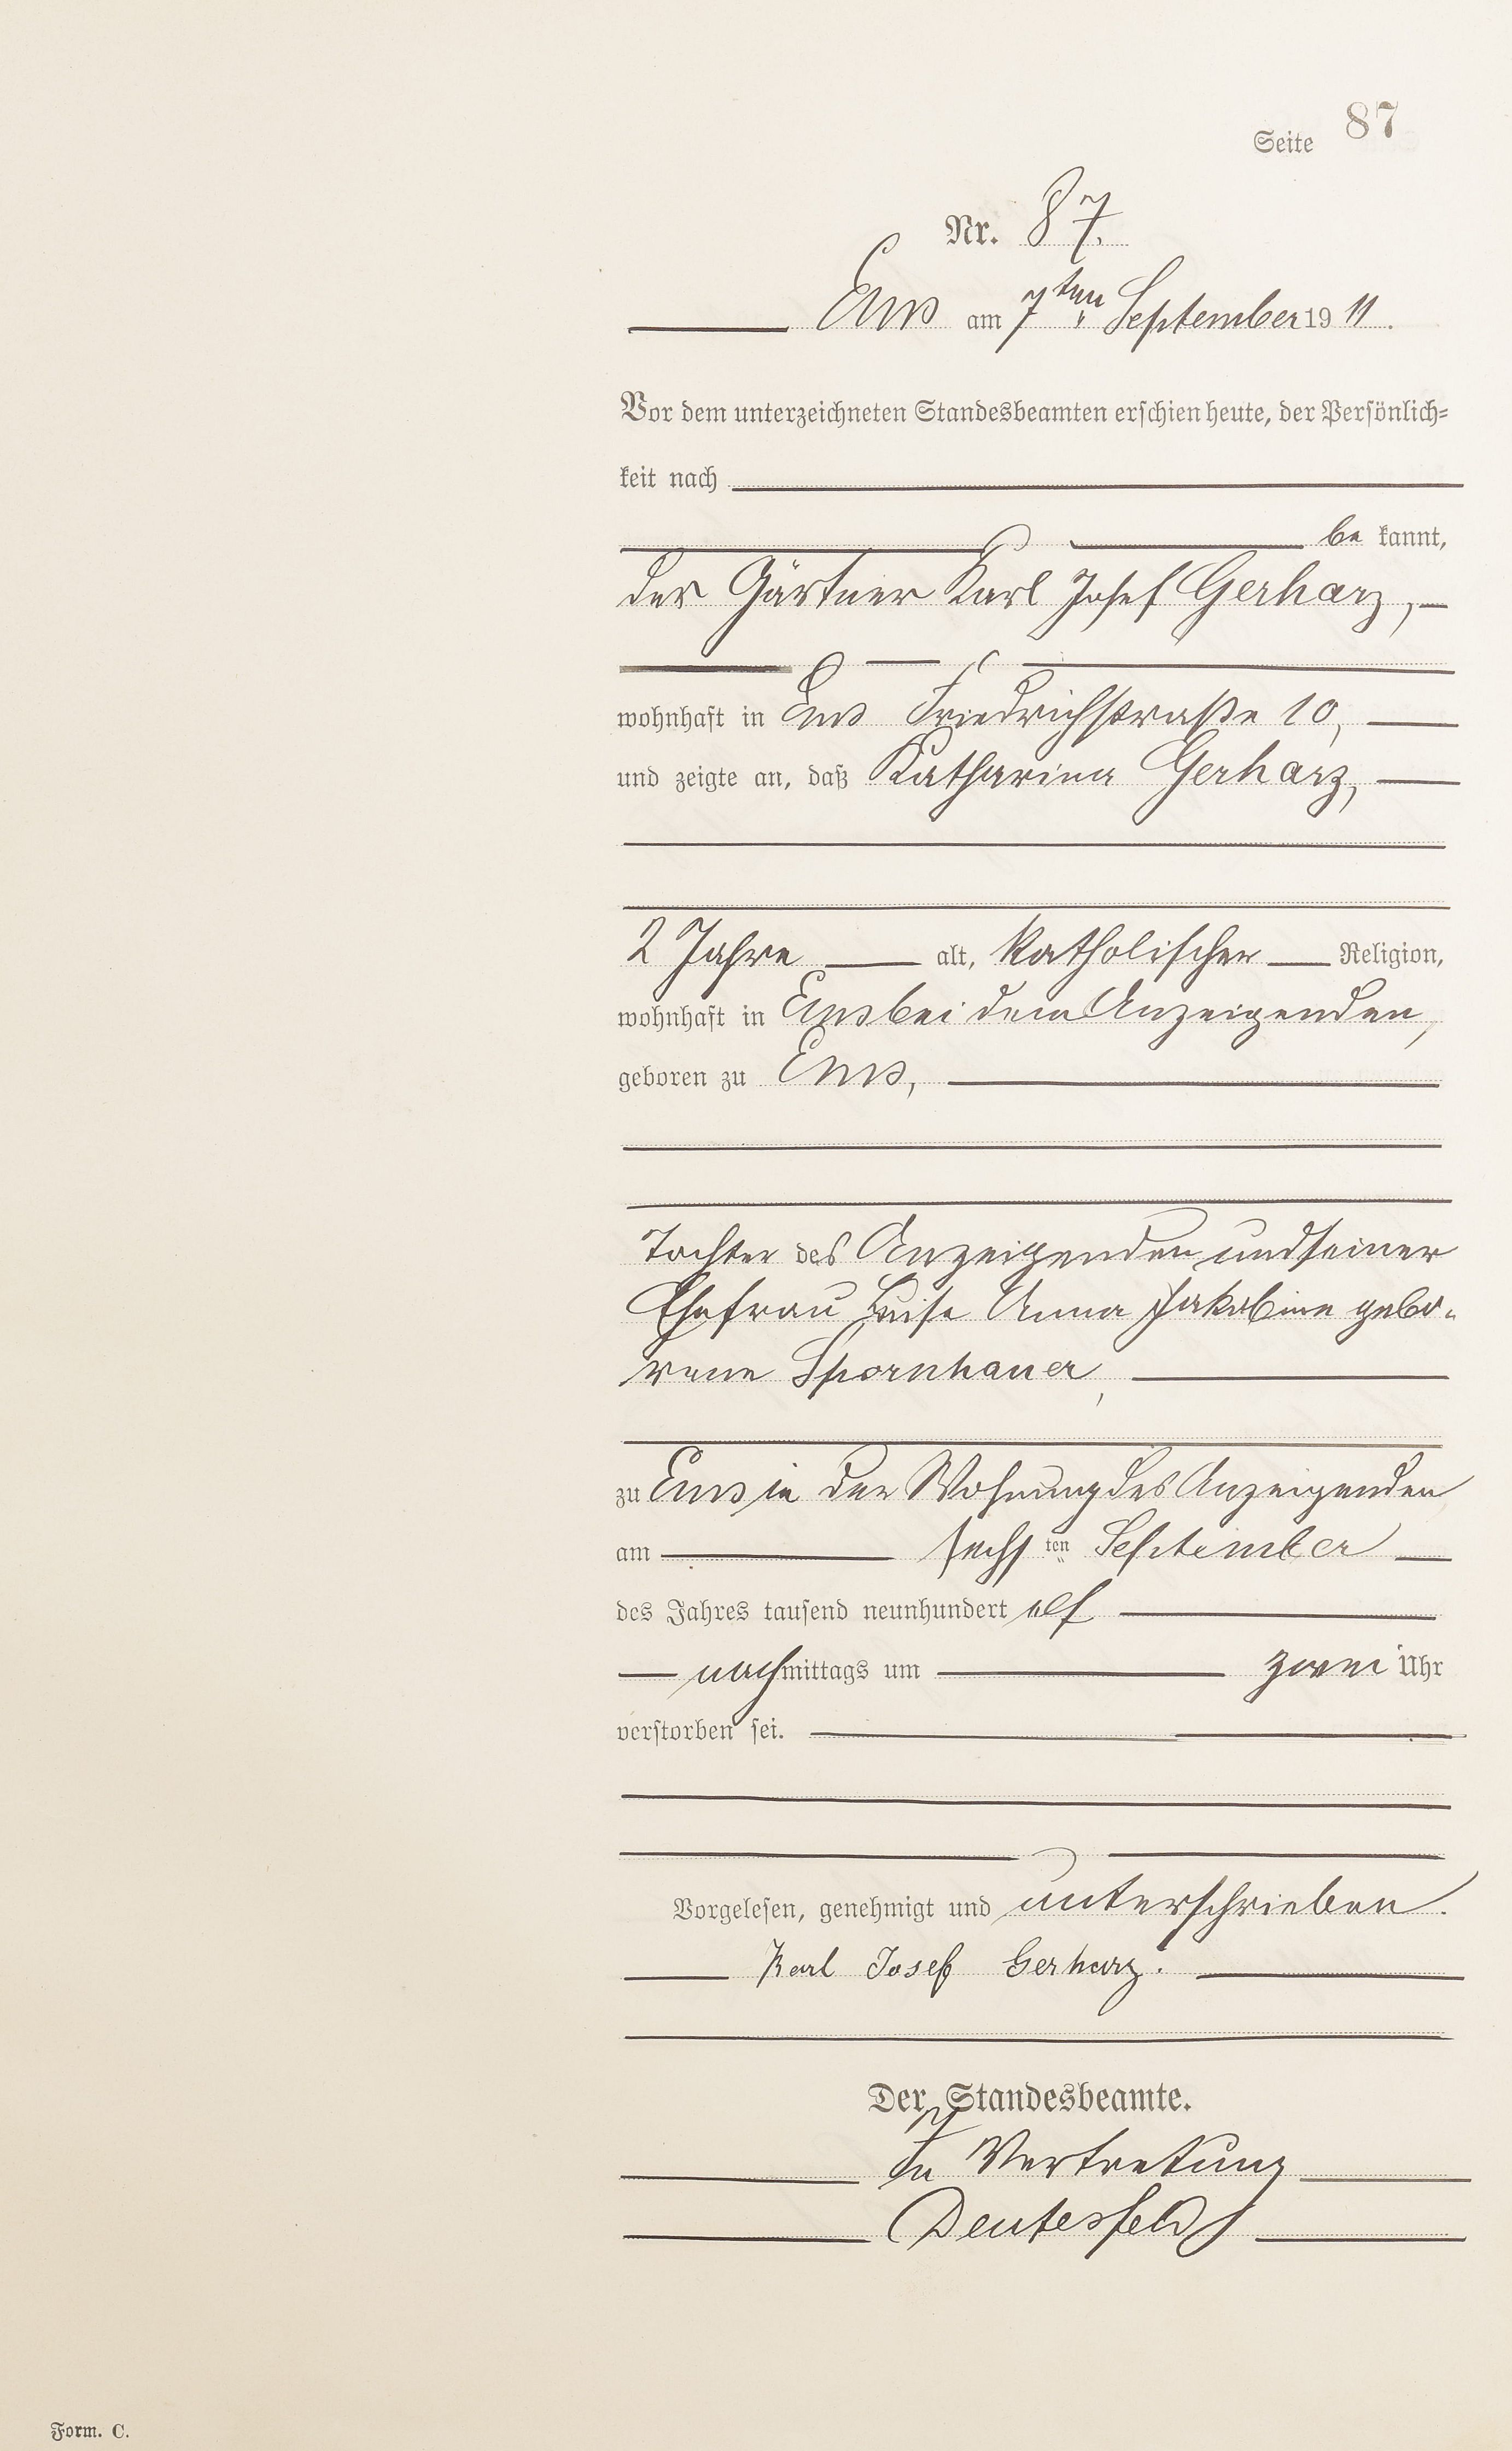 Seite 87
Nr. 87.
Ems am 7ten September 19 11.
Vor dem unterzeichneten Standesbeamten erschien heute, der Persönlich=
keit nach
be kannt,
der Gärtner Karl Josef Gerharz,
wohnhaft in Ems Friedrichstraße 10,
und zeigte an, daß Katharina Gerharz,
2 Jahre alt, katholischer Religion,
wohnhaft in Ems bei dem Anzeigenden,
geboren zu Ems,
Tochter des Anzeigenden und seiner
Ehefrau Luise Anna Jakobine gebo-
rene Spornhauer,
zu Ems in der Wohnung des Anzeigenden
am sechsten September
des Jahres tausend neunhundert elf
nachmittags um zwei Uhr
verstorben sei.
Vorgelesen, genehmigt und unterschrieben.
Karl Josef Gerharz.
Der Standesbeamte.
In Vertretung
Deutesfeld
Form. C.